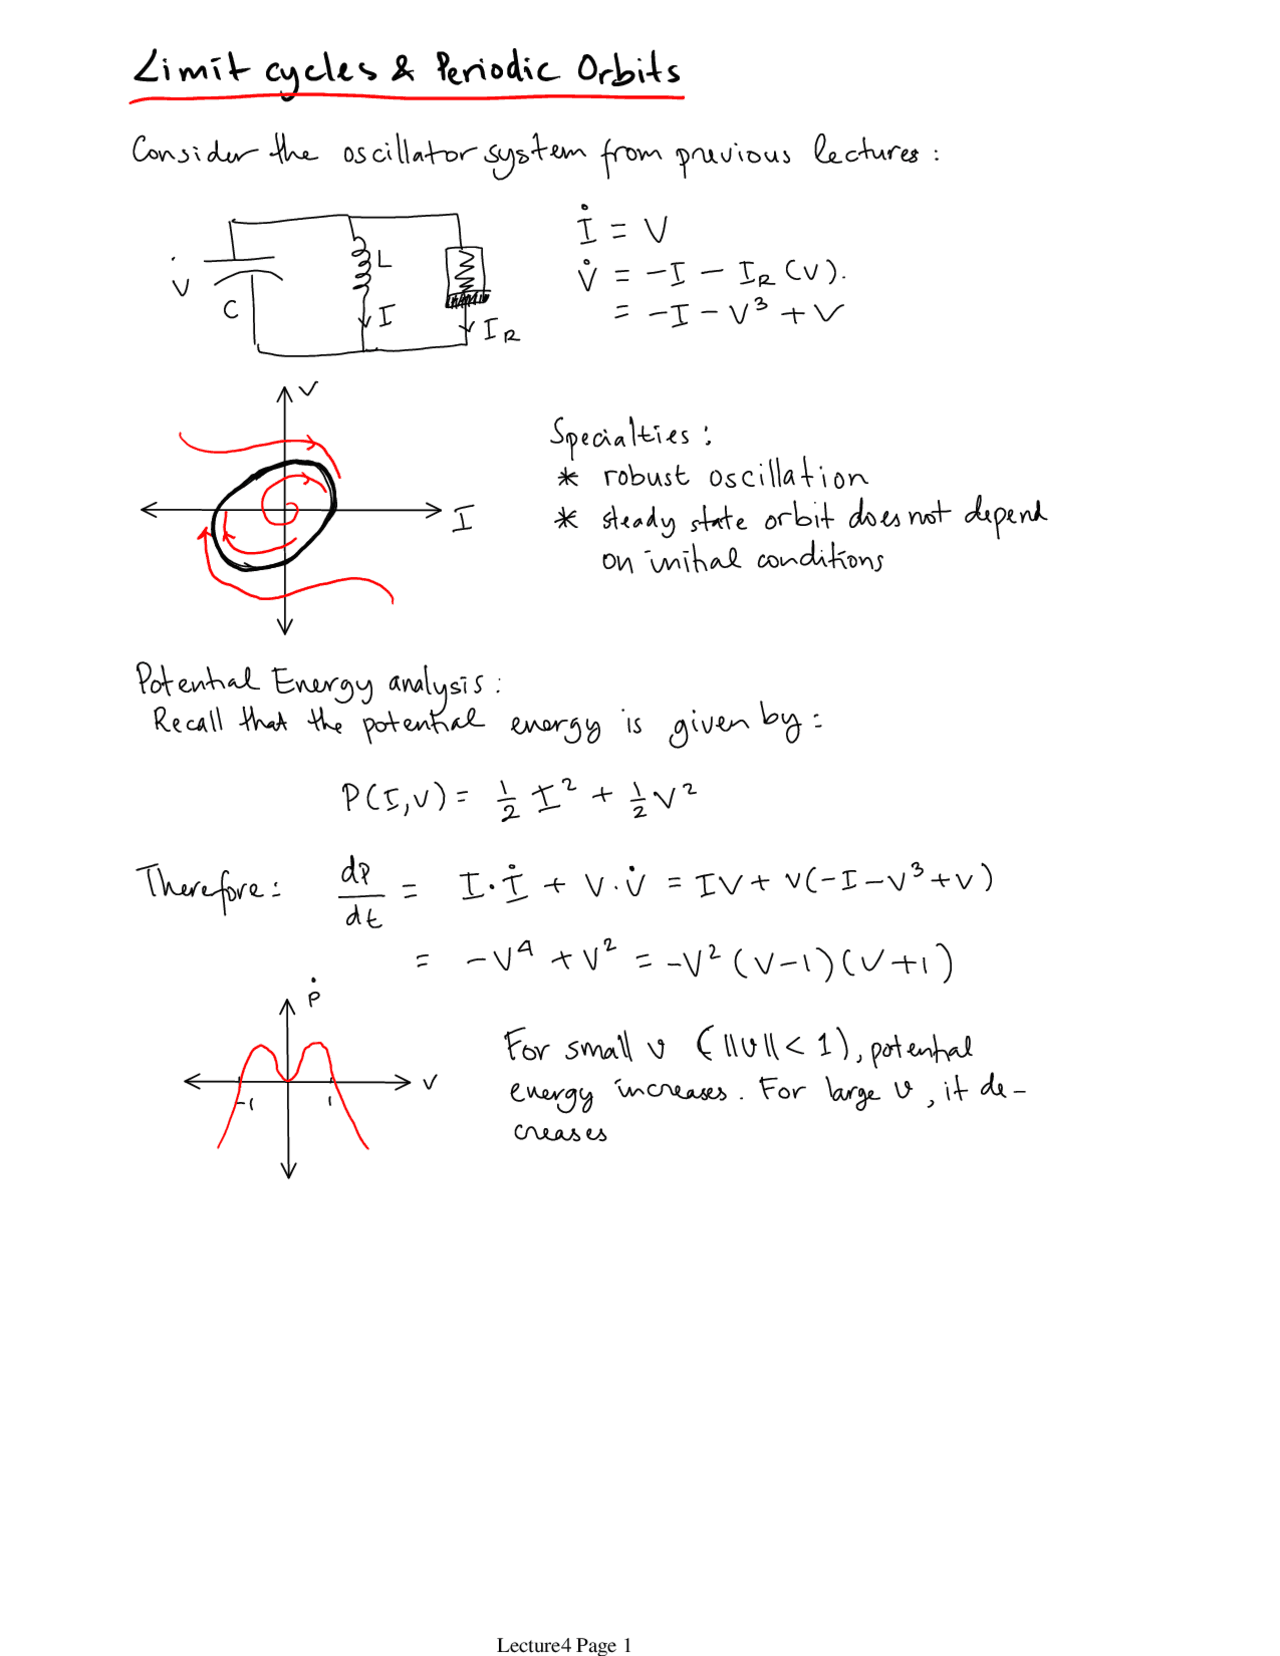 Limit cycles & Periodic Orbits
Consider the oscillator system from previous lectures :
V
C
L
I
I_R
İ = V
V̇ = -I - I_R (V).
= -I - V³ + V
V
I
Specialties :
* robust oscillation
* steady state orbit does not depend
on initial conditions
Potential Energy analysis :
Recall that the potential energy is given by :
P(I,V) = 1/2 I² + 1/2 V²
Therefore : dP/dt = I·İ + V·V̇ = IV + V(-I-V³+V)
= -V⁴ + V² = -V² (V-1)(V+1)
Ṗ
V
-1
1
For small v (||v|| < 1), potential
energy increases. For large v, it de-
creases
Lecture4 Page 1